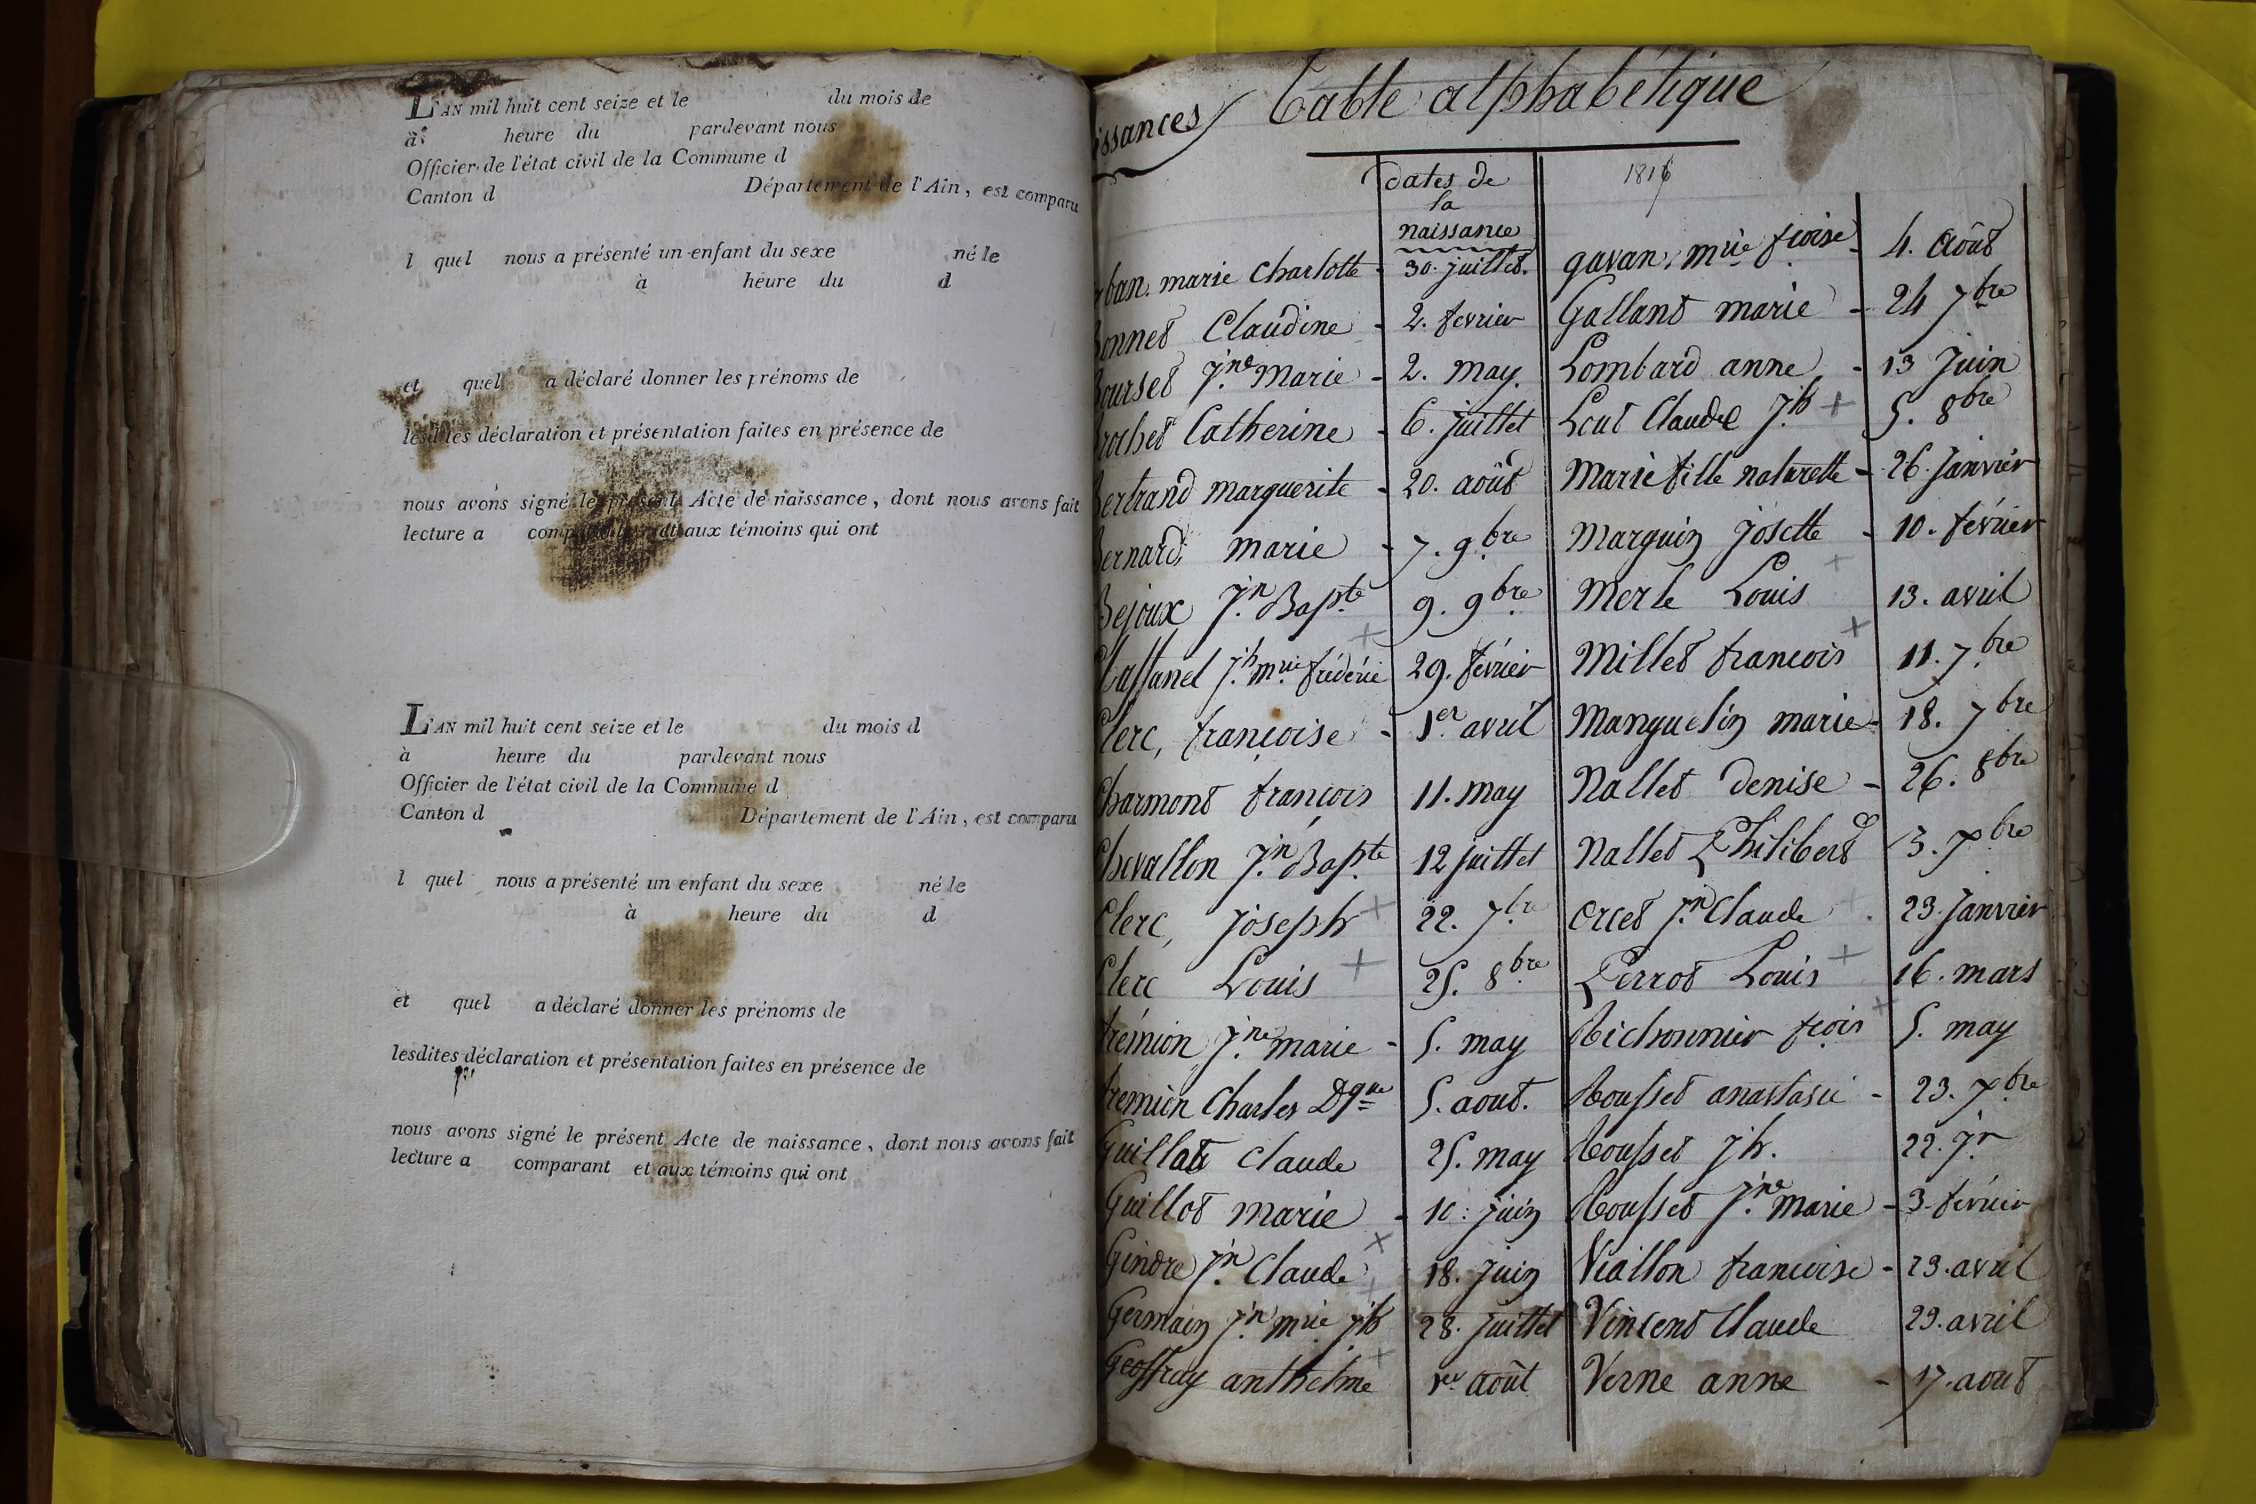 L'AN mil huit cent seize et le du mois de
à heure du pardevant nous
Officier de l'état civil de la Commune d
Canton d Département de l'Ain, est comparu
l quel nous a présenté un enfant du sexe né le
à heure du d
et quel a déclaré donner les prénoms de
lesdites déclaration et présentation faites en présence de
nous avons signé le présent Acte de naissance, dont nous avons fait
lecture a comparant et aux témoins qui ont
L'AN mil huit cent seize et le du mois d
à heure du pardevant nous
Officier de l'état civil de la Commune d
Canton d Département de l'Ain, est comparu
l quel nous a présenté un enfant du sexe né le
à heure du d
et quel a déclaré donner les prénoms de
lesdites déclaration et présentation faites en présence de
nous avons signé le présent Acte de naissance, dont nous avons fait
lecture a comparant et aux témoins qui ont
issances Table alphabétique
dates de
la
naissance
1816
rban. marie Charlotte - 30. juillet.
Bonnet Claudine - 2. fevrier
Bourset Jne Marie - 2. may.
Brochet Catherine - 6. juillet
Bertrand marguerite - 20. août
Bernard marie - 7. 9bre
Bejoux Jn Bapte 9. 9bre
Chassanel Jh mie fréderic 29. février
Clerc, françoise - 1er avril
Charmont françois 11. may
Chevallon Jn Bapte 12 juillet
Clerc, joseph + 22. 7bre
Clerc Louis + 25. 8bre
frémion Jne marie - 5. may
fremion Charles Dque 5. aout.
Guillot Claude 25. may
Guillot marie - 10. juin
Gindre Jn Claude + 18. juin
Germain Jn mie jh 28. juillet
Geoffray anthelme + 1er août
gavan, mie fçoise - 4. Août
Gallant marie - 24 7bre
Lombard anne - 13 Juin
Lout Claude Jh + 5. 8bre
Marie fille naturelle - 26. Janvier
Marguin josette - 10. février
Merle Louis + 13. avril
Millet francois + 11. 7bre
Manguelin marie - 18. 7bre
Nallet Denise - 26. 8bre
Nallet Philibert 3. Xbre
Orcet Jn Claude + 23. Janvier
Perrot Louis + 16. mars
Richonnier fçois + 5. may
Rousset anastasie - 23. Xbre
Rousset jh. 22. Jr
Rousset Jne marie - 3. février
Viallon francoise - 23. avril
Vincent Claude 29. avril
Verne anne - 17. aout